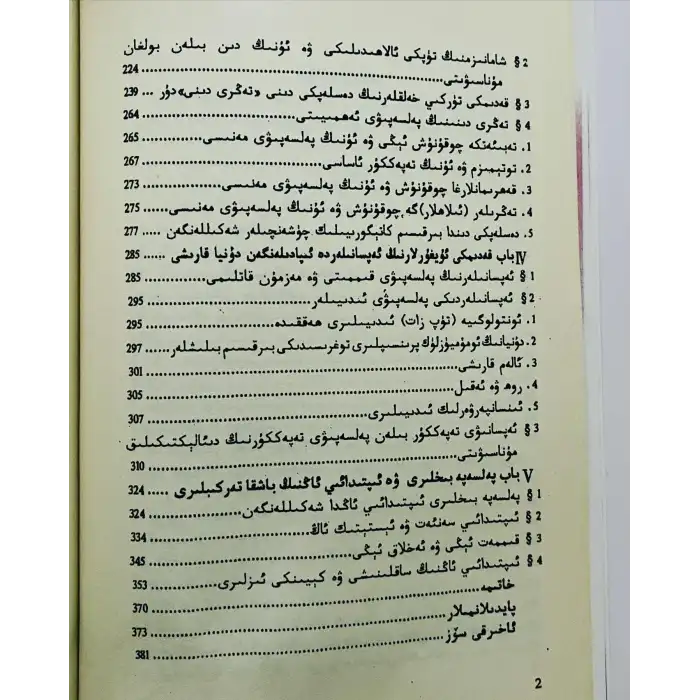 § 2 شامانىزمنىڭ تۈپكى ئالاھىدىلىكى ۋە ئۇنىڭ دىن بىلەن بولغان
مۇناسىۋىتى ........ 224
§ 3 قەدىمكى تۈركىي خەلقلەرنىڭ دەسلەپكى دىنى «تەڭرى دىنى»دۇر ... 239
§ 4 تەڭرى دىنىنىڭ پەلسەپىۋى ئەھمىيىتى ........ 264
1. تەبىئەتكە چوقۇنۇش ئېڭى ۋە ئۇنىڭ پەلسەپىۋى مەنىسى ........ 265
2. توتېمىزم ۋە ئۇنىڭ تەپەككۇر ئاساسى ........ 267
3. قەھرىمانلارغا چوقۇنۇش ۋە ئۇنىڭ پەلسەپىۋى مەنىسى ........ 273
4. تەڭرىلەر (ئىلاھلار)گە چوقۇنۇش ۋە ئۇنىڭ پەلسەپىۋى مەنىسى ........ 275
5. دەسلەپكى دىندا بىرقىسىم كاتېگورىيىلىك چۈشەنچىلەر شەكىللەنگەن ........ 277
IV باب قەدىمكى ئۇيغۇرلارنىڭ ئەپسانىلەردە ئىپادىلەنگەن دۇنيا قارىشى ........ 285
§ 1 ئەپسانىلەرنىڭ پەلسەپىۋى قىممىتى ۋە مەزمۇن قاتلىمى ........ 285
§ 2 ئەپسانىلەردىكى پەلسەپىۋى ئىدىيىلەر ........ 295
1. ئونتولوگىيە (تۈپ زات) ئىدىيىلىرى ھەققىدە ........ 295
2. دۇنيانىڭ ئومۇمىيۈزلۈك پرىنسىپلىرى توغرىسىدىكى بىرقىسىم بىلىشلەر ........ 297
3. ئالەم قارىشى ........ 301
4. روھ ۋە ئەقىل ........ 305
5. ئىنسانپەرۋەرلىك ئىدىيىلىرى ........ 307
§ 3 ئەپسانىۋى تەپەككۇر بىلەن پەلسەپىۋى تەپەككۇرنىڭ دىئالېكتىكىلىق
مۇناسىۋىتى ........ 310
V باب پەلسەپە بىخلىرى ۋە ئىپتىدائىي ئاڭنىڭ باشقا تەركىبلىرى ........ 324
§ 1 پەلسەپە بىخلىرى ئىپتىدائىي ئاڭدا شەكىللەنگەن ........ 324
§ 2 ئىپتىدائىي سەنئەت ۋە ئېستېتىك ئاڭ ........ 334
§ 3 قىممەت ئېڭى ۋە ئەخلاق ئېڭى ........ 345
§ 4 ئىپتىدائىي ئاڭنىڭ ساقلىنىشى ۋە كېيىنكى ئىزلىرى ........ 353
خاتىمە ........ 370
پايدىلانمىلار ........ 373
ئاخىرقى سۆز ........ 381
2